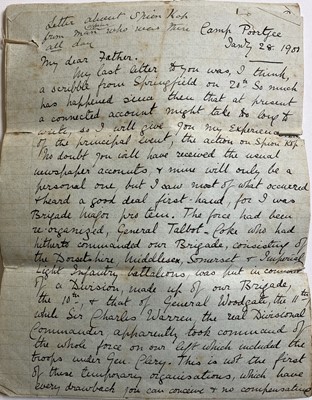 Letter about Spion Kop
from man who was there
all day
Camp Poortjee
Jany 28. 1900
My dear Father.
My last letter to you was, I think,
a scribble from Springfield on 20th. So much
has happened since then that at present
a connected account might take too long to
write, so I will give you my experience
of the principal event, the action on Spion Kop.
No doubt you will have received the usual
newspaper accounts, & mine will only be a
personal one but I saw most of what occurred
& heard a good deal first-hand, for I was
Brigade Major pro tem. The force had been
re-organized, General Talbot-Coke who had
hitherto commanded our Brigade, consisting of
the Dorsetshire, Middlesex, Somerset & Imperial
Light Infantry battalions, was put in command
of a Division, made up of our Brigade,
the 10th & that of General Woodgate, the 11th
while Sir Charles Warren the real Divisional
Commander apparently took command of
the whole force on our left which included the
troops under Gen. Clery. This is not the first
of these temporary organisations, which have
every drawback you can conceive & no compensating